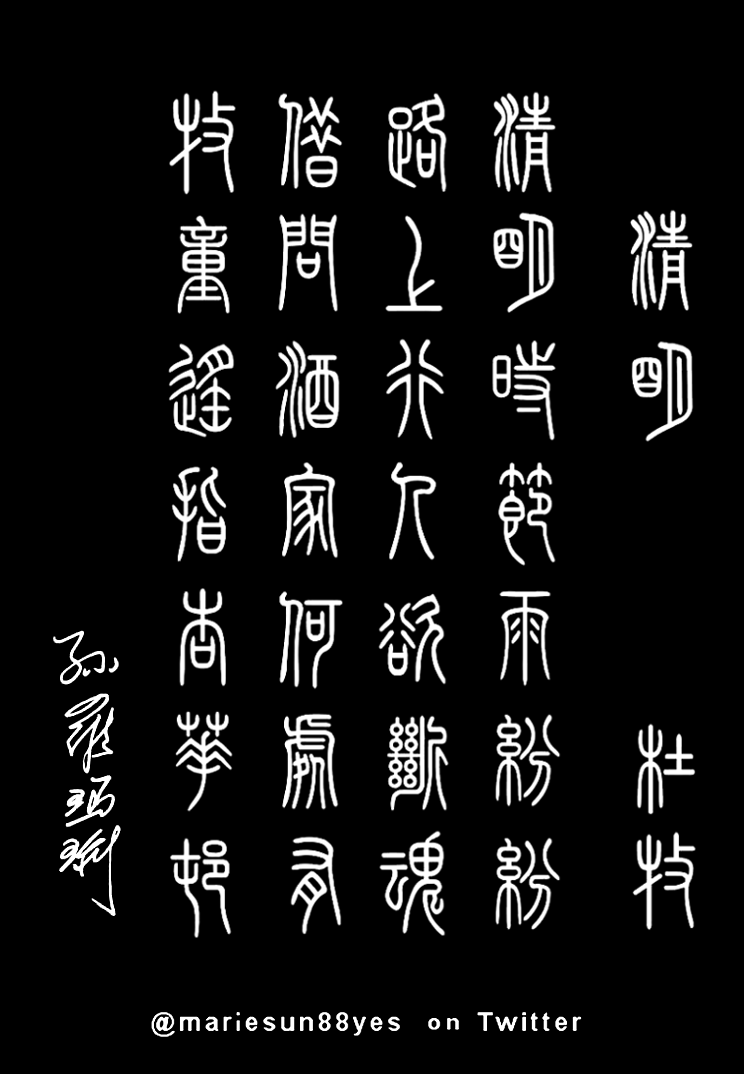 清明
杜牧
清明時節雨紛紛
路上行人欲斷魂
借問酒家何處有
牧童遙指杏華邨
孫羅瑪琍
@mariesun88yes on Twitter